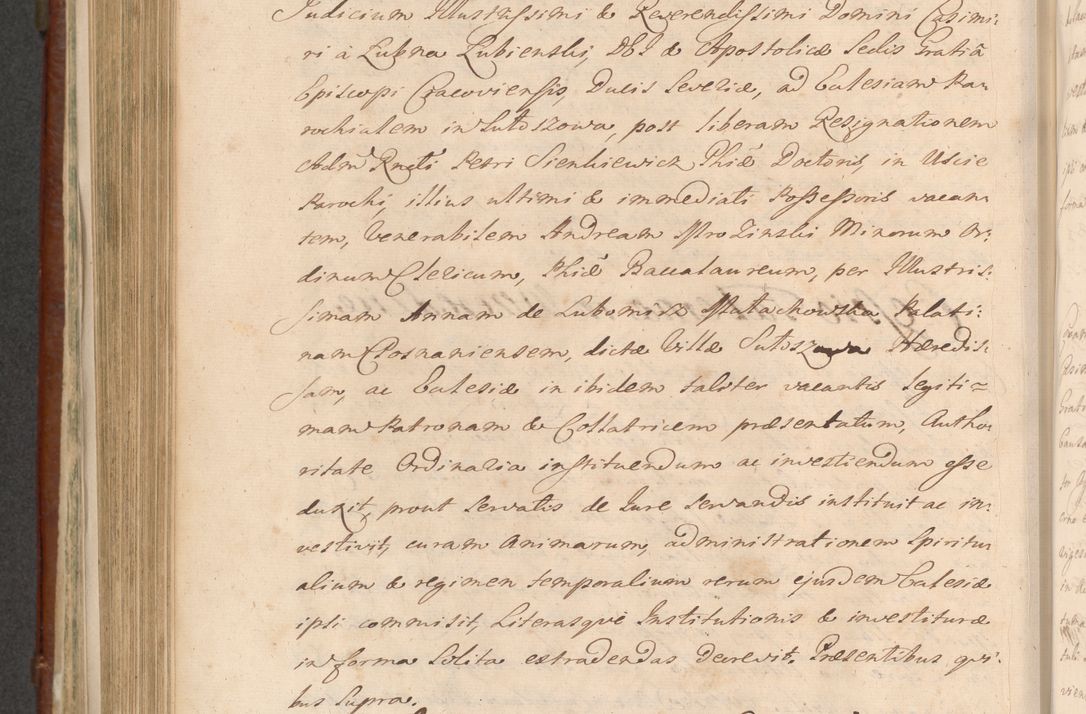 Judicium Illustrissimi & Reverendissimi Domini Casimi:
ri à Łubna Łubienski, DEI & Apostolicæ Sedis Gratiâ
Episcopi Cracoviensis, Ducis Severiæ, ad Eclesiam Pa-
rochialem in Sułoszowa post liberam Resignationem
Adm Rndi Petri Sienkiewicz Phiæ Doctoris, in Uscie
Parochi, illius ultimi & immediati Possessoris vacan
tem, Venerabilem Andream Mro Zinski Minorum Or:
dinum Clericum, Phiæ Baccalaureum, per Illustris:
simam Annam de Lubomirz Małachowska Palati:
nam Posnaniensem, dictæ Villæ Sułoszowa Hæredis:
sam, ac Eclesiæ in ibidem taliter vacantis legiti=
mam Patronam & Collatricem præsentatum, Autho
ritate Ordinaria instituendum ac investiendum esse
duxit, prout servatis de Jure servandis instituit ac in:
vestivit, curam Animarum, administrationem Spiritu
alium & regimen temporalium rerum ejusdem Eclesiæ
ipsi commisit, Literasque Institutionis & investituræ
in forma solita extradendas decrevit. Præsentibus qvi:
bus supra.